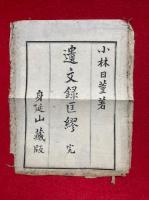 小林日董著
遺文録匡繆 完
身延山藏版